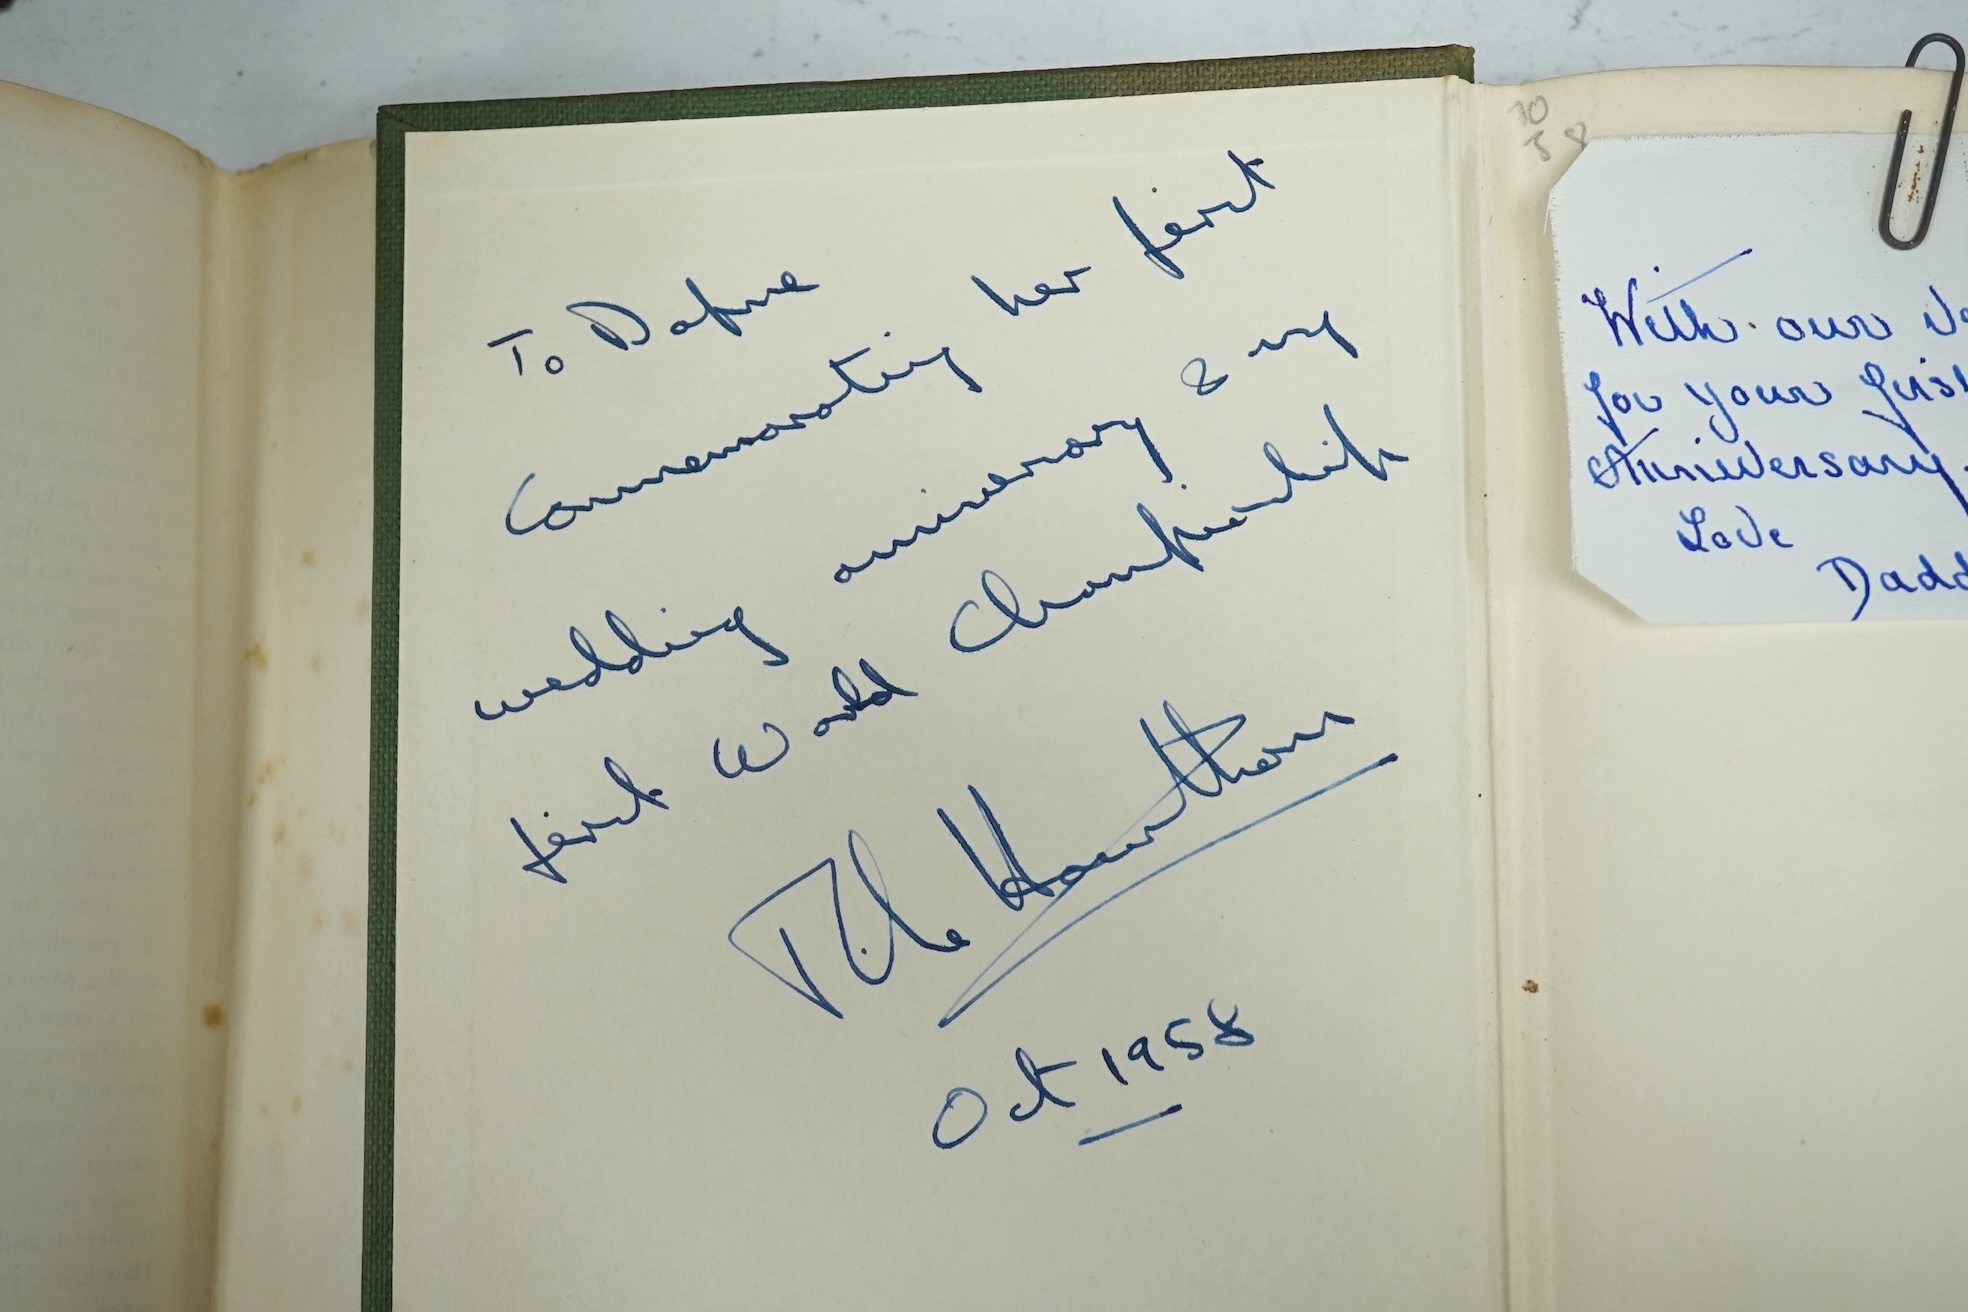 To Dafne
Commemorating her first
wedding anniversary & my
first World Championship
Mike Hawthorn
Oct 1958
10
5 8
With our
for your first
Anniversary.
Love
Dadd